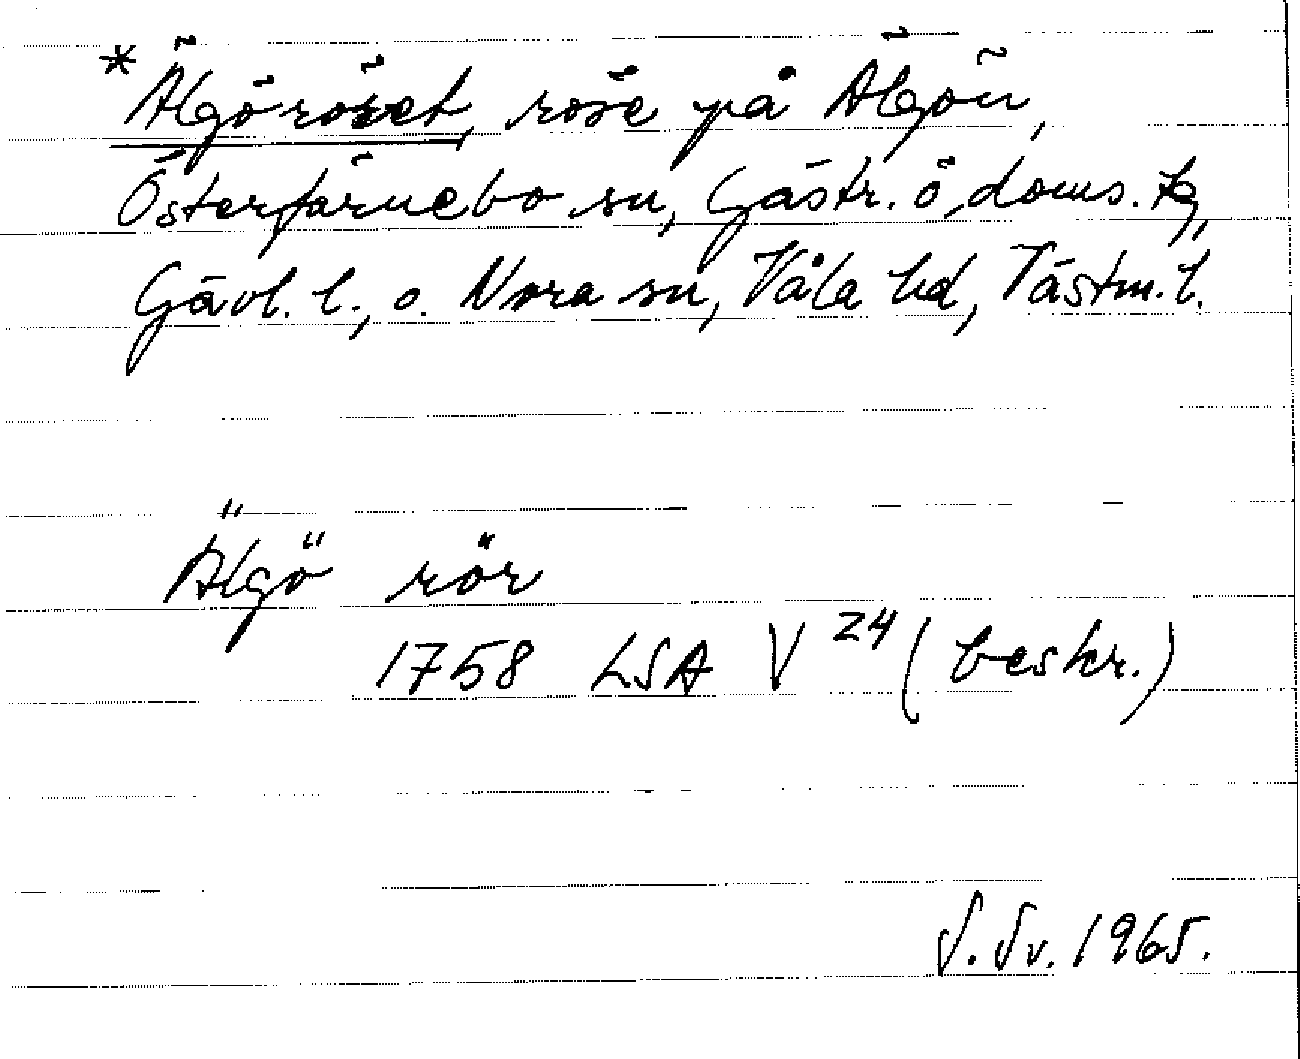 *Älgöröset, röse på Älgön,
Österfärnebo sn, Gästr. ö. doms. tg,
Gävl. l., o. Nora sn, Våla hd, Västm. l.
Älgö rör
1758 LSA V 24 (beskr.)
S. Sv. 1965.